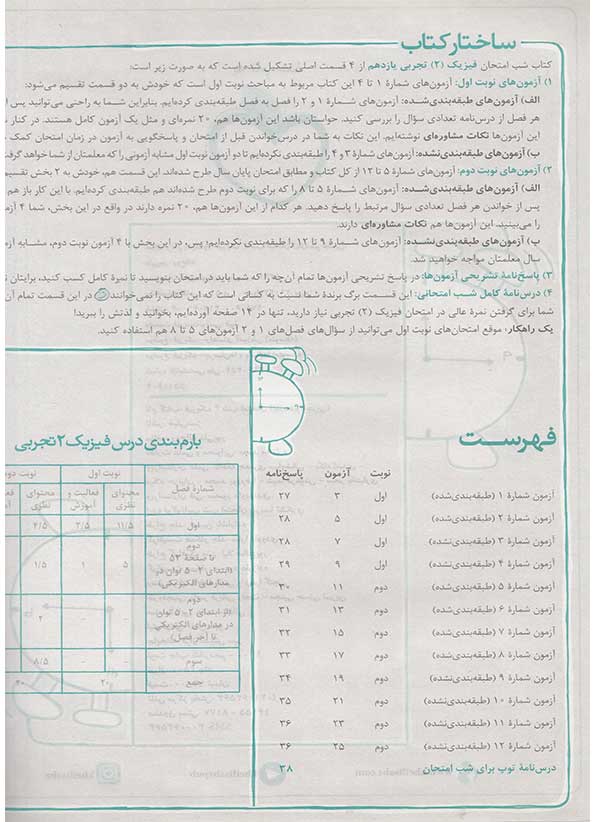 ساختار کتاب
کتاب شب امتحان فیزیک (۲) تجربی یازدهم از ۴ قسمت اصلی تشکیل شده است که به صورت زیر است:
۱) آزمون‌های نوبت اول: آزمون‌های شمارهٔ ۱ تا ۴ این کتاب مربوط به مباحث نوبت اول است که خودش به دو قسمت تقسیم می‌شود:
الف) آزمون‌های طبقه‌بندی‌شده: آزمون‌های شمارهٔ ۱ و ۲ را فصل به فصل طبقه‌بندی کرده‌ایم. بنابراین شما به راحتی می‌توانید پس از
هر فصل از درس‌نامه تعدادی سؤال را بررسی کنید. حواستان باشد این آزمون‌ها هم، ۲۰ نمره‌ای و مثل یک آزمون کامل هستند. در کنار
این آزمون‌ها نکات مشاوره‌ای نوشته‌ایم. این نکات به شما در درس‌خواندن قبل از امتحان و پاسخگویی به آزمون در زمان امتحان کمک
ب) آزمون‌های طبقه‌بندی‌نشده: آزمون‌های شمارهٔ ۳ و ۴ را طبقه‌بندی نکرده‌ایم تا دو آزمون نوبت اول مشابه آزمونی را که معلمتان از شما خواهد گرفت
۲) آزمون‌های نوبت دوم: آزمون‌های شمارهٔ ۵ تا ۱۲ از کل کتاب و مطابق امتحان پایان سال طرح شده‌اند. این قسمت هم، خودش به ۲ بخش تقسیم
الف) آزمون‌های طبقه‌بندی‌شده: آزمون‌های شمارهٔ ۵ تا ۸ را که برای نوبت دوم طرح شده‌اند هم طبقه‌بندی کرده‌ایم. با این کار باز هم
پس از خواندن هر فصل تعدادی سؤال مرتبط را پاسخ دهید. هر کدام از این آزمون‌ها هم، ۲۰ نمره دارند در واقع در این بخش، شما ۴
را می‌بینید. این آزمون‌ها هم نکات مشاوره‌ای دارند.
ب) آزمون‌های طبقه‌بندی‌نشده: آزمون‌های شمارهٔ ۹ تا ۱۲ را طبقه‌بندی نکرده‌ایم؛ پس، در این بخش با ۴ آزمون نوبت دوم، مشابه
سال معلمتان مواجه خواهید شد.
۳) پاسخ‌نامهٔ تشریحی آزمون‌ها: در پاسخ تشریحی آزمون‌ها تمام آن‌چه را که شما باید در امتحان بنویسید تا نمرهٔ کامل کسب کنید، برایتان
۴) درس‌نامهٔ کامل شب امتحانی: این قسمت برگ برندهٔ شما نسبت به کسانی است که این کتاب را نمی‌خوانند در این قسمت تمام آن
شما برای گرفتن نمرهٔ عالی در امتحان فیزیک (۲) تجربی نیاز دارید، تنها در ۱۴ صفحه آورده‌ایم، بخوانید و لذتش را ببرید!
یک راهکار: موقع امتحان‌های نوبت اول می‌توانید از سؤال‌های فصل‌های ۱ و ۲ آزمون‌های ۵ تا ۸ هم استفاده کنید.
فهرست
نوبت آزمون پاسخ‌نامه
آزمون شمارهٔ ۱ (طبقه‌بندی‌شده) اول ۳ ۲۷
آزمون شمارهٔ ۲ (طبقه‌بندی‌شده) اول ۵ ۲۸
آزمون شمارهٔ ۳ (طبقه‌بندی‌نشده) اول ۷ ۲۸
آزمون شمارهٔ ۴ (طبقه‌بندی‌نشده) اول ۹ ۲۹
آزمون شمارهٔ ۵ (طبقه‌بندی‌شده) دوم ۱۱ ۳۰
آزمون شمارهٔ ۶ (طبقه‌بندی‌شده) دوم ۱۳ ۳۱
آزمون شمارهٔ ۷ (طبقه‌بندی‌شده) دوم ۱۵ ۳۲
آزمون شمارهٔ ۸ (طبقه‌بندی‌شده) دوم ۱۷ ۳۳
آزمون شمارهٔ ۹ (طبقه‌بندی‌نشده) دوم ۱۹ ۳۴
آزمون شمارهٔ ۱۰ (طبقه‌بندی‌نشده) دوم ۲۱ ۳۵
آزمون شمارهٔ ۱۱ (طبقه‌بندی‌نشده) دوم ۲۳ ۳۶
آزمون شمارهٔ ۱۲ (طبقه‌بندی‌نشده) دوم ۲۵ ۳۶
درس‌نامهٔ توپ برای شب امتحان ۳۸
بارم‌بندی درس فیزیک ۲ تجربی
شمارهٔ فصل نوبت اول نوبت
محتوای نظری فعالیت و آموزش محتوای نظری
اول ۱۱/۵ ۲/۵ ۴/۵
دوم
تا صفحهٔ ۵۳ ۵ ۱ ۱/۵
(ابتدای ۲-۵ توان در
مدارهای الکتریکی)
دوم
(از ابتدای ۲-۵ توان - - ۲
در مدارهای الکتریکی
تا آخر فصل)
سوم - - ۸/۵
جمع ۲۰ ۲۰